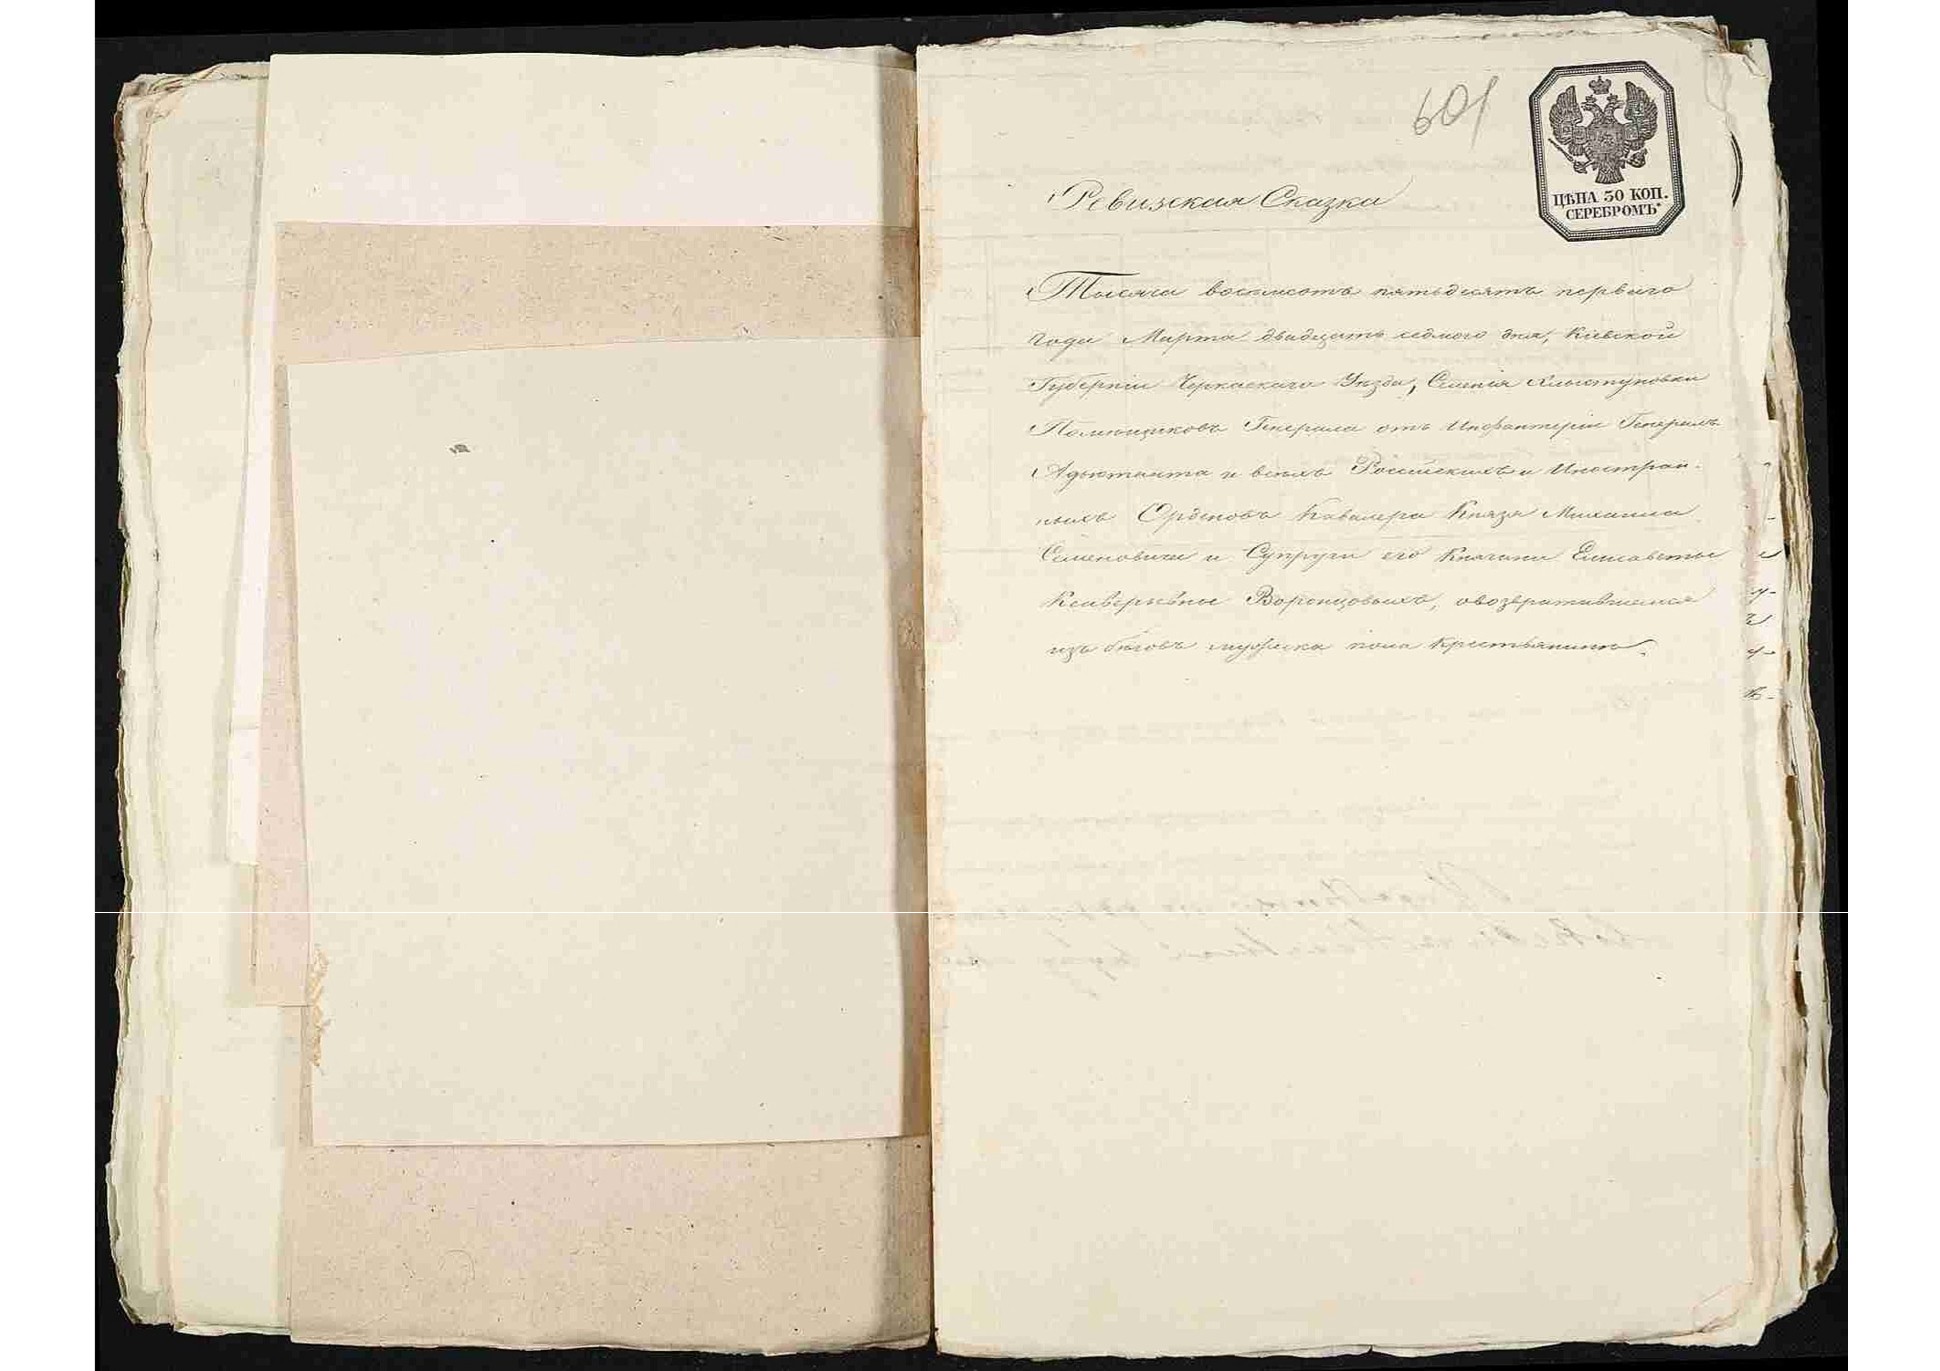 601
ЦѢНА 30 КОП.
СЕРЕБРОМЪ
Ревизская Сказка
Тысяча восемсотъ пятьдесятъ первого
года Марта двадцать седмого дня, Кіевской
Губерніи Черкаскаго Уѣзда, Селенія Хлыступовки
Помѣщиковъ Генерала отъ Инфантеріи Генералъ
Адъютанта и всѣхъ Россійскихъ и Иностран-
ныхъ Орденовъ Кавалера Князя Михаила
Семеновича и Супруги его Княгини Елисаветы
Ксаверьевны Воронцовыхъ, овозвратившемся
изъ бѣговъ мужеска пола Крестьянинѣ.